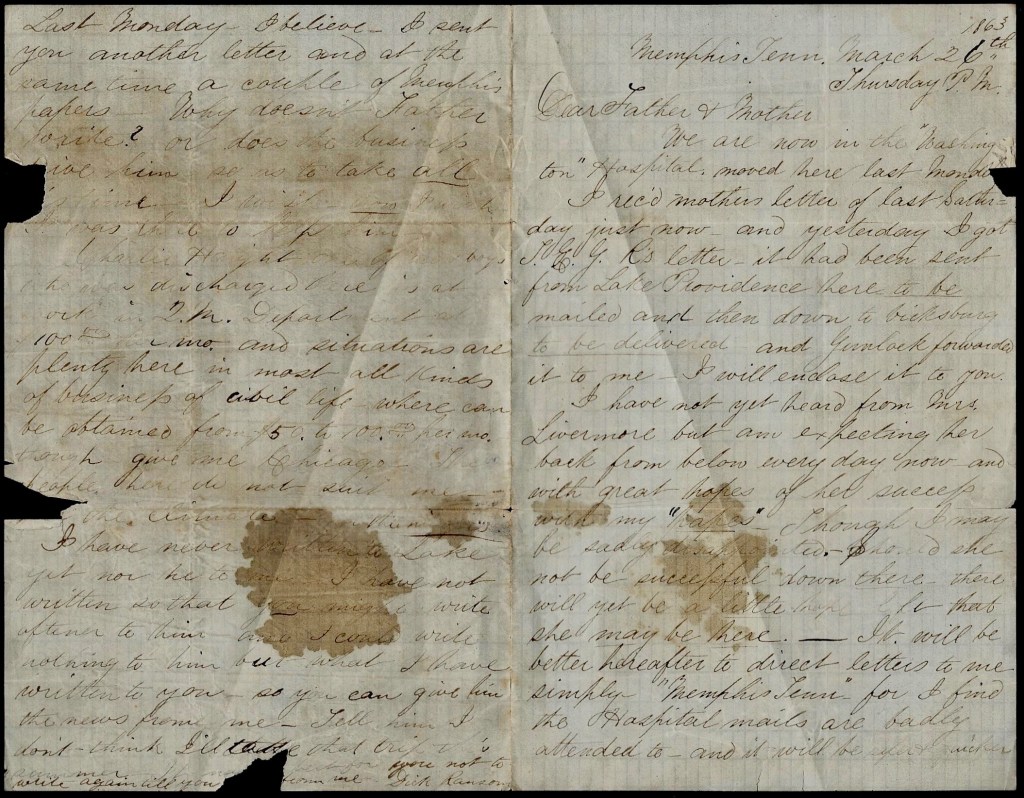 1863
Memphis Tenn. March 26th
Thursday P.M.
Dear Father & Mother
We are now in the "Washing
ton" Hospital. moved here last Monday
I rec'd mothers letter of last Satur-
day just now - and yesterday I got
letter - it had been sent
from Lake Providence here to be
mailed and then down to vicksburg
to be delivered and Gunlock forwarded
it to me - I will enclose it to you.
I have not yet heard from Mrs.
Livermore but am expecting her
back from below every day now - and
with great hopes of her success
with my "papers" - Though I may
be sadly disappointed. - Should she
not be successful down there - there
will yet be a little hope left that
she may be here. — It will be
better hereafter to direct letters to me
simply "Memphis Tenn" for I find
the Hospital mails are badly
attended to - and it will be quicker
Last Monday I believe - I sent
you another letter and at the
same time a couple of Memphis
papers - Why doesn't Father
write? or does the business
give him so as to take all
his time - I wish
it was
Charlie Haight one of boys
who was discharged here is at
work in Q.M. Department at
$100 mo. and situations are
plenty here in most all kinds
of business of civil life where can
be obtained from $50. to 100.00 per mo.
though give me Chicago. The
people here do not suit me -
the climate -
I have never written to Lake
yet nor he to me I have not
written so that you might write
oftener to him I could write
nothing to him but what I have
written to you - so you can give him
the news from me - Tell him I
don't - think I'll take that trip
were not to
write again all you from me Dick Ransom